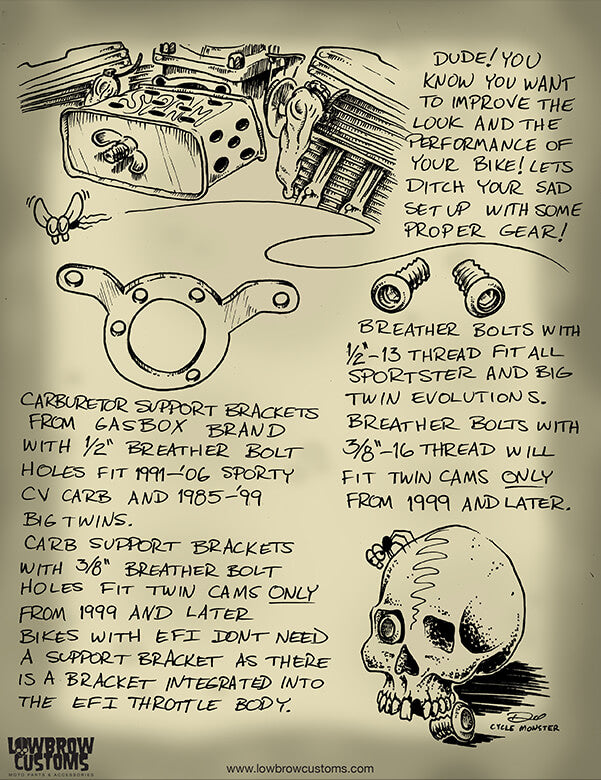 DUDE! YOU
KNOW YOU WANT
TO IMPROVE THE
LOOK AND THE
PERFORMANCE OF
YOUR BIKE! LETS
DITCH YOUR SAD
SET UP WITH SOME
PROPER GEAR!
BREATHER BOLTS WITH
1/2"-13 THREAD FIT ALL
SPORTSTER AND BIG
TWIN EVOLUTIONS.
BREATHER BOLTS WITH
3/8"-16 THREAD WILL
FIT TWIN CAMS ONLY
FROM 1999 AND LATER.
CARBURETOR SUPPORT BRACKETS
FROM GASBOX BRAND
WITH 1/2" BREATHER BOLT
HOLES FIT 1991-'06 SPORTY
CV CARB AND 1985-'99
BIG TWINS.
CARB SUPPORT BRACKETS
WITH 3/8" BREATHER BOLT
HOLES FIT TWIN CAMS ONLY
FROM 1999 AND LATER
BIKES WITH EFI DONT NEED
A SUPPORT BRACKET AS THERE
IS A BRACKET INTEGRATED INTO
THE EFI THROTTLE BODY.
CYCLE MONSTER
LOWBROW
CUSTOMS
MOTO PARTS & ACCESSORIES
www.lowbrowcustoms.com